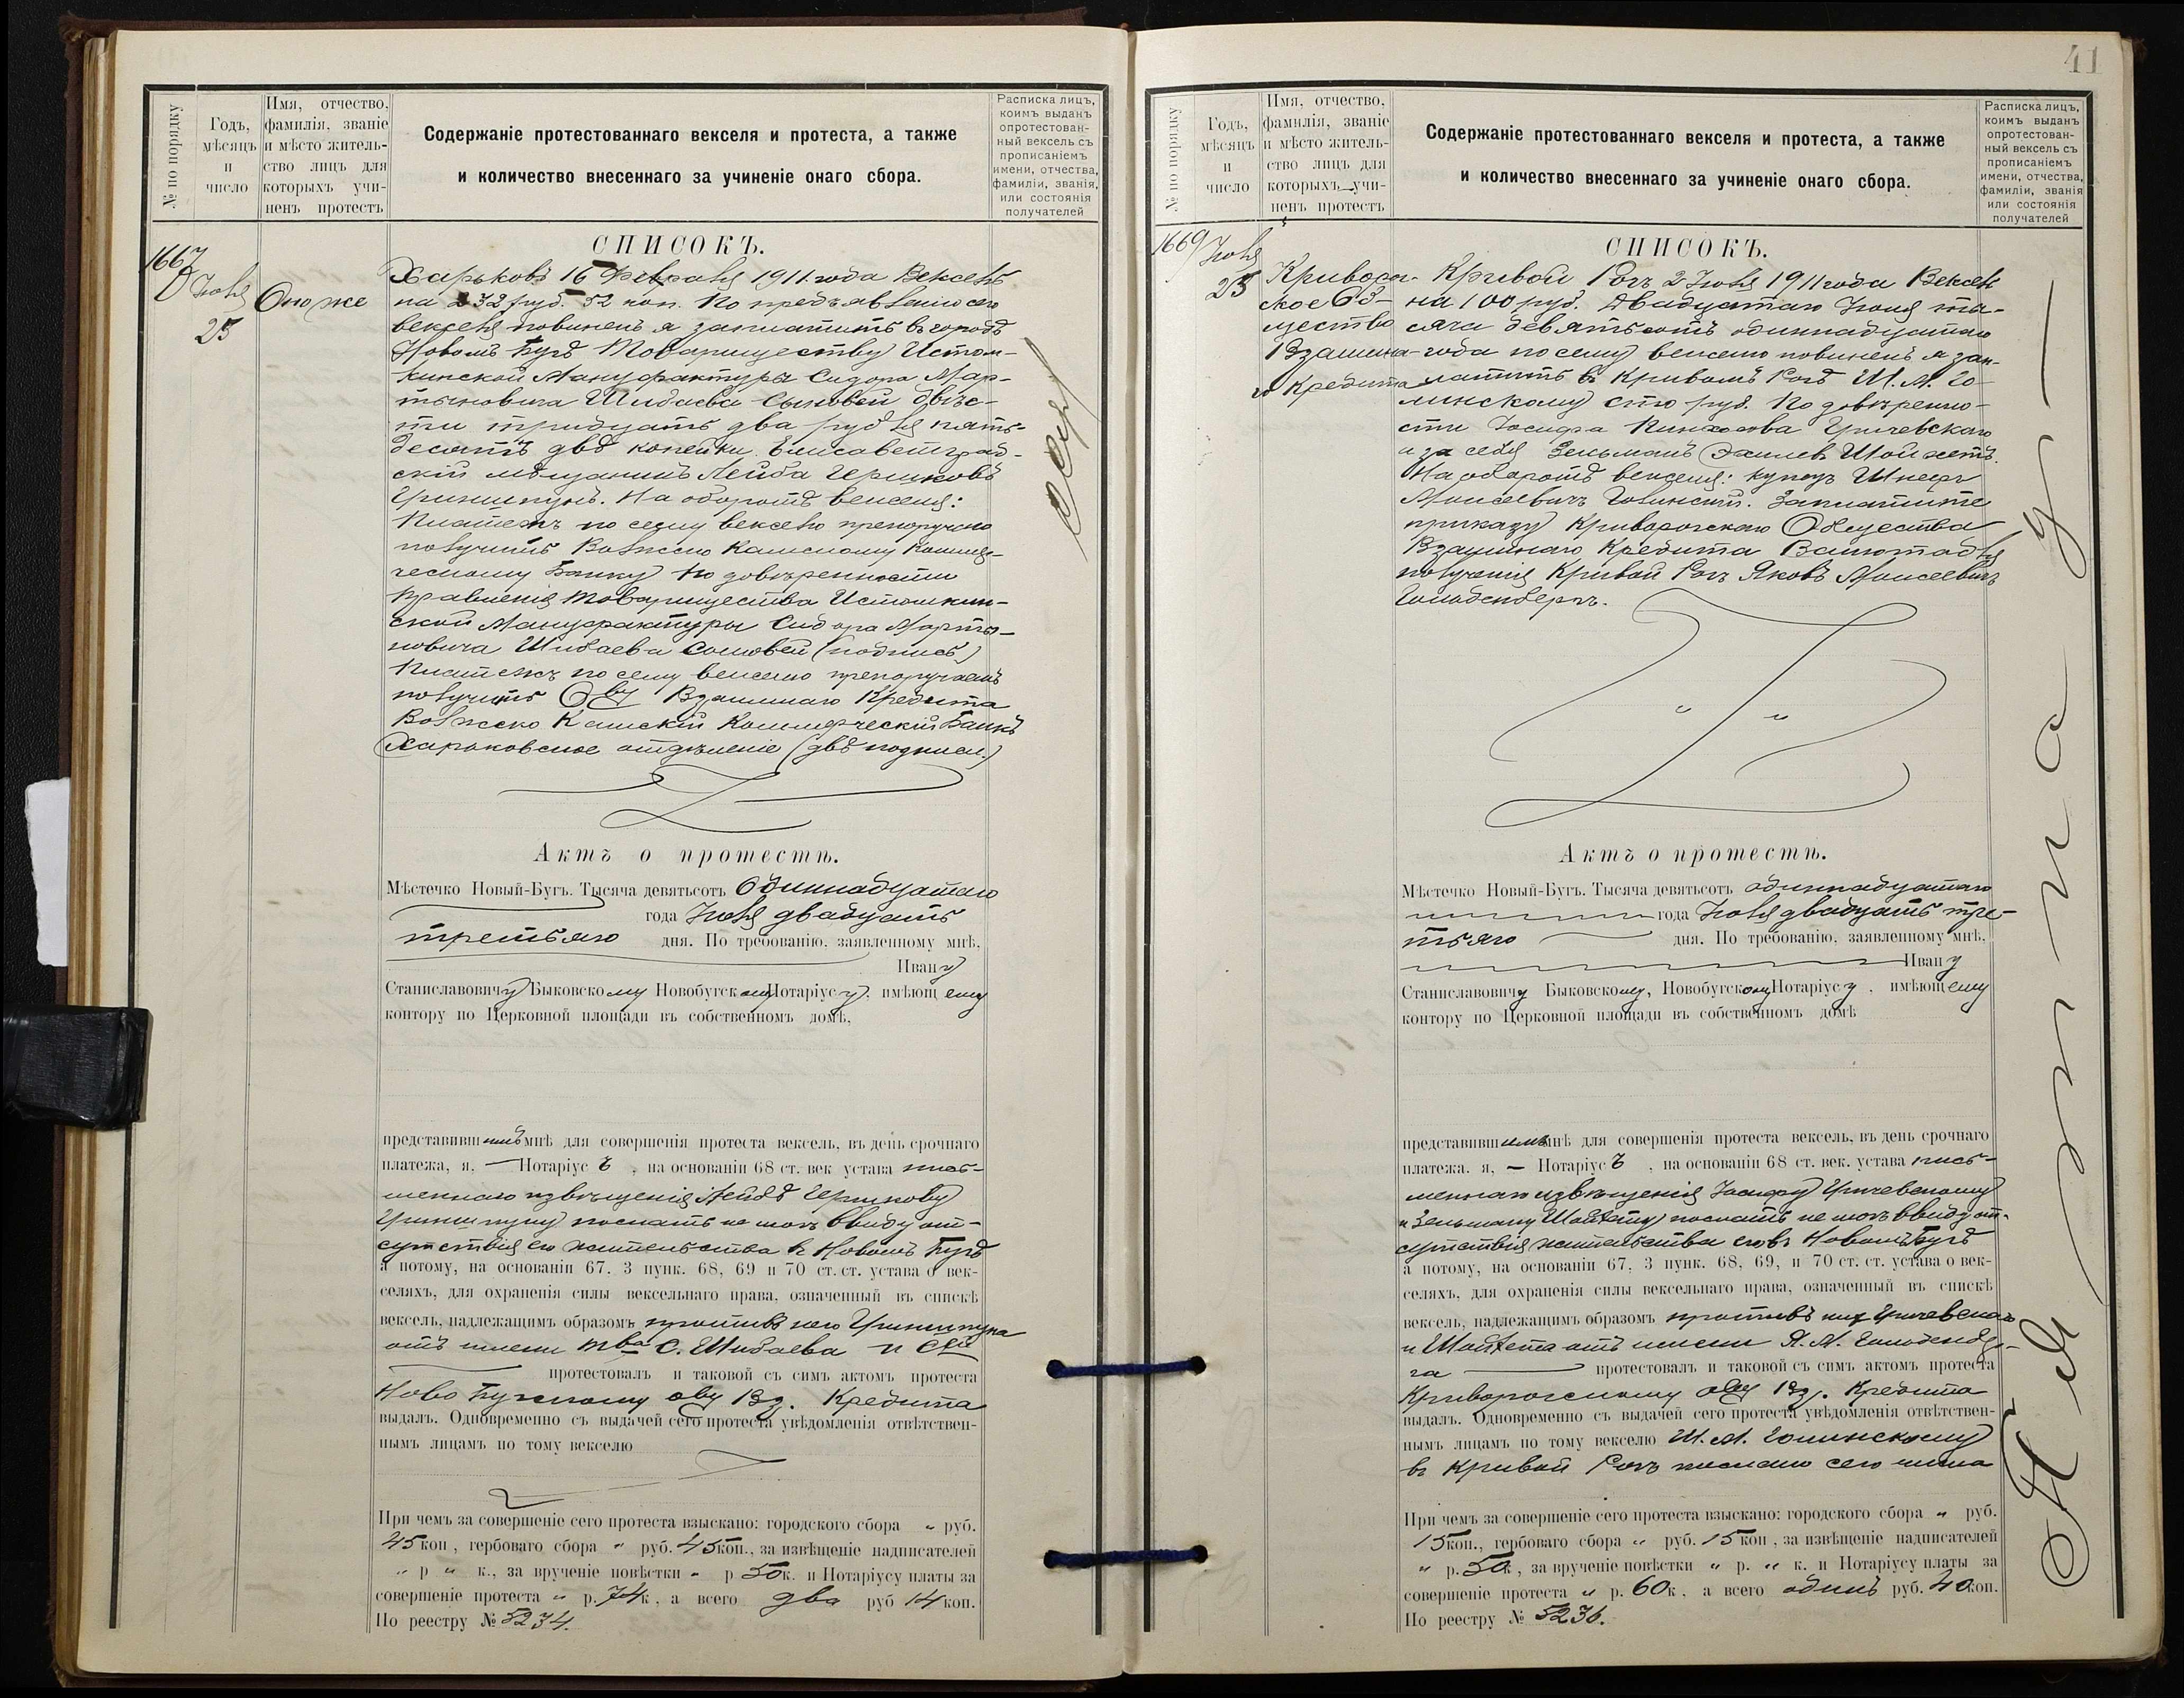 № по порядку
Годъ, мѣсяцъ и число
Имя, отчество, фамилія, званіе и мѣсто жительство лицъ для которыхъ учиненъ протестъ
Содержаніе протестованнаго векселя и протеста, а также
и количество внесеннаго за учиненіе онаго сбора.
Расписка лицъ, коимъ выданъ опротестованный вексель съ прописаніемъ имени, отчества, фамиліи, званія, или состоянія получателей
СПИСОКЪ.
1667
Іюля
23
Оно же
Харьковъ 16 Февраля 1911 года Вексель
на 232 руб. 52 коп. По предъявленію сего
векселя повиненъ я заплатить въ городѣ
Новомъ Бугѣ Товариществу Истом-
кинской Мануфактуры Сидора Мар-
тыновича Шибаева Сыновей двѣс-
ти тридцать два рубля пять-
десятъ двѣ копейки. Елисаветград-
скій мѣщанинъ Лейба Гершковъ
На оборотѣ векселя:
Платежъ по сему векселю препоручено
получить Волжско Камскому Коммер-
ческому Банку По довѣренности
Правленія Товарищества Истомкин-
ской Мануфактуры Сидора Марты-
новича Шибаева Сыновей (подпись)
Платежъ по сему векселю препоручаемъ
получить Обву Взаимнаго Кредита
Волжско Камскій Коммерческій Банкъ
Харьковское отдѣленіе (двѣ подписи.)
Актъ о протестѣ.
Мѣстечко Новый-Бугъ. Тысяча девятьсотъ Одиннадцатаго
года Іюля двадцать
третьяго дня. По требованію, заявленному мнѣ,
Ивану
Станиславовичу Быковскому Новобугскому Нотаріусу, имѣющему
контору по Церковной площади въ собственномъ домѣ,
представившимъ мнѣ для совершенія протеста вексель, въ день срочнаго
платежа, я, — Нотаріусъ, на основаніи 68 ст. век устава пись-
меннаго извѣщенія Лейбѣ Гершкову
послать не могъ ввиду от-
сутствія его жительства въ Новомъ Бугѣ
а потому, на основаніи 67. 3 пунк. 68, 69 и 70 ст. ст. устава о век-
селяхъ, для охраненія силы вексельнаго права, означенный въ спискѣ
вексель, надлежащимъ образомъ противъ него
отъ имени Тва С. Шибаева и Сей
протестовалъ и таковой съ симъ актомъ протеста
Ново Бугскому обву Вз. Кредита
выдалъ. Одновременно съ выдачей сего протеста увѣдомленія отвѣтствен-
нымъ лицамъ по тому векселю
При чемъ за совершеніе сего протеста взыскано: городского сбора „ руб.
45 коп, гербоваго сбора „ руб. 45 коп., за извѣщеніе надписателей
„ р „ к., за врученіе повѣстки „ р 50 к. и Нотаріусу платы за
совершеніе протеста „ р. 74 к, а всего два руб 14 коп.
По реестру № 5234.
41
№ по порядку
Годъ, мѣсяцъ и число
Имя, отчество, фамилія, званіе и мѣсто жительство лицъ для которыхъ учиненъ протестъ
Содержаніе протестованнаго векселя и протеста, а также
и количество внесеннаго за учиненіе онаго сбора.
Расписка лицъ, коимъ выданъ опротестованный вексель съ прописаніемъ имени, отчества, фамиліи, званія или состоянія получателей
СПИСОКЪ.
1669
Іюля
23
Криворож-
ское Об-
щество
Взаимна-
го Кредита
Кривой Рогъ 2 Іюля 1911 года Вексель
на 100 руб. Двадцатаго Іюля ты-
сяча девятьсотъ одиннадцатаго
года по сему векселю повиненъ я зап-
латить въ Кривомъ Рогѣ Ш. М. Го-
линскому сто руб. По довѣренно-
сти Іосифа
и за себя Зельманъ
На оборотѣ векселя: купецъ
Моисеевичъ Голинскій. Заплатите
приказу Криворожскаго Общества
Взаимнаго Кредита Валюта для
полученія Кривой Рогъ Яковъ Моисеевичъ
Гольденбергъ.
Актъ о протестѣ.
Мѣстечко Новый-Бугъ. Тысяча девятьсотъ одиннадцатаго
года Іюля двадцать тре-
тьяго дня. По требованію, заявленному мнѣ,
Ивану
Станиславовичу Быковскому, Новобугскому Нотаріусу, имѣющему
контору по Церковной площади въ собственномъ домѣ
представившимъ мнѣ для совершенія протеста вексель, въ день срочнаго
платежа. я, — Нотаріусъ, на основаніи 68 ст. век. устава пись-
меннаго извѣщенія Іосифу
и Зельману послать не могъ ввиду от-
сутствія жительства въ Новомъ Бугѣ
а потому, на основаніи 67, 3 пунк. 68, 69, и 70 ст. ст. устава о век-
селяхъ, для охраненія силы вексельнаго права, означенный въ спискѣ
вексель, надлежащимъ образомъ противъ
отъ имени Я. М. Гольденбер-
га протестовалъ и таковой съ симъ актомъ протеста
Криворожскому обву Вз. Кредита
выдалъ. Одновременно съ выдачей сего протеста увѣдомленія отвѣтствен-
нымъ лицамъ по тому векселю Ш. М. Голинскому
въ Кривой Рогъ послано сего числа
При чемъ за совершеніе сего протеста взыскано: городского сбора „ руб.
15 коп., гербоваго сбора „ руб. 15 коп, за извѣщеніе надписателей
„ р. 50 к, за врученіе повѣстки „ р. „ к. и Нотаріусу платы за
совершеніе протеста „ р. 60 к, а всего одинъ руб. 40 коп.
По реестру № 5236.